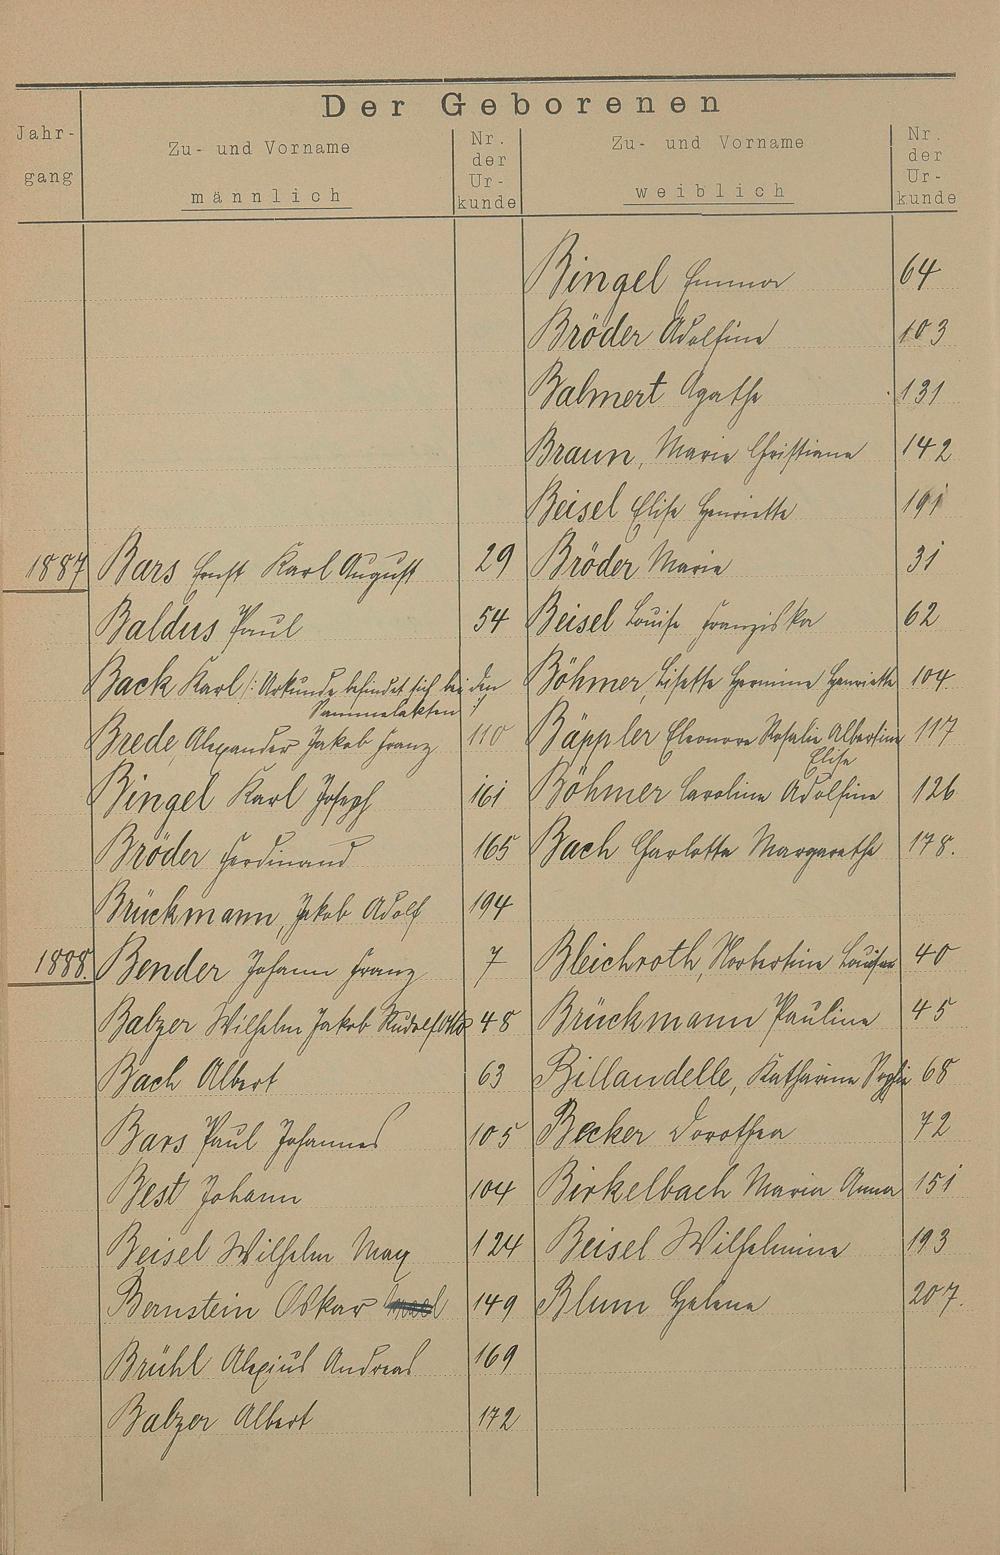 Der Geborenen
Jahr-
gang
Zu- und Vorname
männlich
Nr.
der
Ur-
kunde
Zu- und Vorname
weiblich
Nr.
der
Ur-
kunde
Bingel Emma 64
Bröder Adolfine 103
Balmert Agathe 131
Braun, Marie Christiane 142
Beisel Elise Henriette 191
1887 Bars Ernst Karl August 29 Bröder Marie 31
Baldus Paul 54 Beisel Louise Franziska 62
Back Karl /: Urkunde befindet sich bei den Böhmer, Lisette Hermine Henriette 104
Sammelakten :/
Brede, Alexander Jakob Franz 110 Bäppler Eleonore Rosalie Albertine 117
Elise
Bingel Karl Joseph 161 Böhmer Caroline Adolfine 126
Bröder Ferdinand 165 Bach Charlotte Margarethe 178.
Brückmann, Jakob Adolf 194
1888. Bender Johann Franz 7 Bleichroth, Norbertine Louise 40
Balzer Wilhelm Jakob Rudolf Otto 48 Brückmann Pauline 45
Bach Albert 63 Billaudelle, Katharina Sophie 68
Bars Paul Johannes 105 Becker Dorothea 72
Best Johann 104 Birkelbach Maria Anna 151
Beisel Wilhelm Max 124 Beisel Wilhelmine 193
Bernstein Oskar 149 Blum Helene 207.
Brühl Alexius Andreas 169
Balzer Albert 172